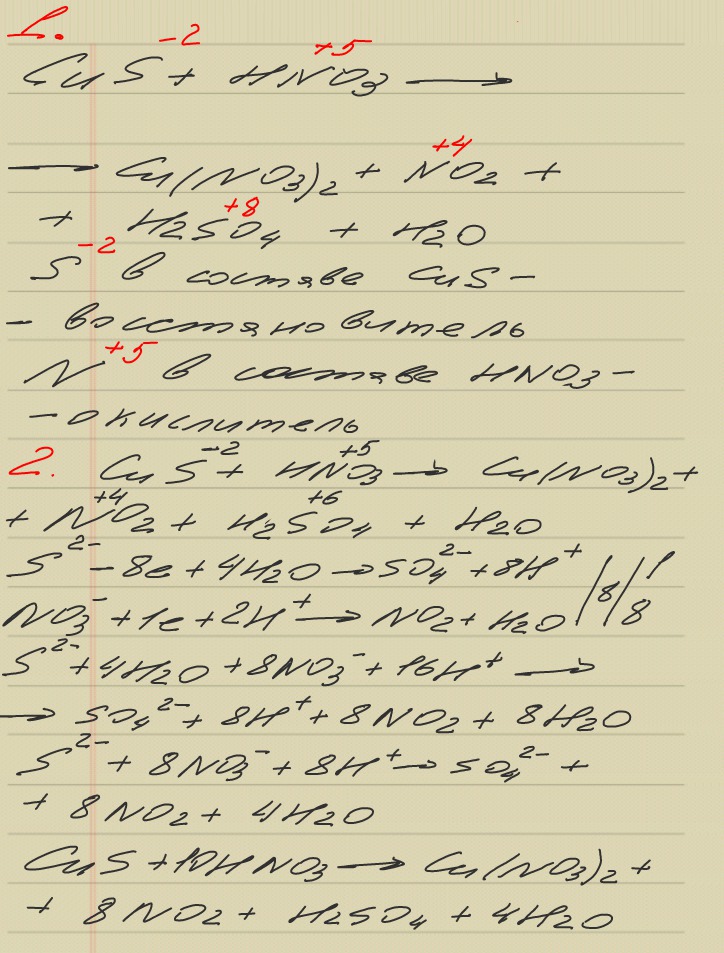 1.
-2 +5
CuS + HNO3 ⟶
+4
⟶ Cu(NO3)2 + NO2 +
+8
+ H2SO4 + H2O
-2
S в составе CuS -
- восстановитель
+5
N в составе HNO3 -
- окислитель
2. CuS-2 + HN+5O3 ⟶ Cu(NO3)2 +
+ N+4O2 + H2S+6O4 + H2O
S2- - 8e + 4H2O ⟶ SO42- + 8H+ / 8 / 1
NO3- + 1e + 2H+ ⟶ NO2 + H2O / 1 / 8
S2- + 4H2O + 8NO3- + 16H+ ⟶
⟶ SO42- + 8H+ + 8NO2 + 8H2O
S2- + 8NO3- + 8H+ ⟶ SO42- +
+ 8NO2 + 4H2O
CuS + 10HNO3 ⟶ Cu(NO3)2 +
+ 8NO2 + H2SO4 + 4H2O